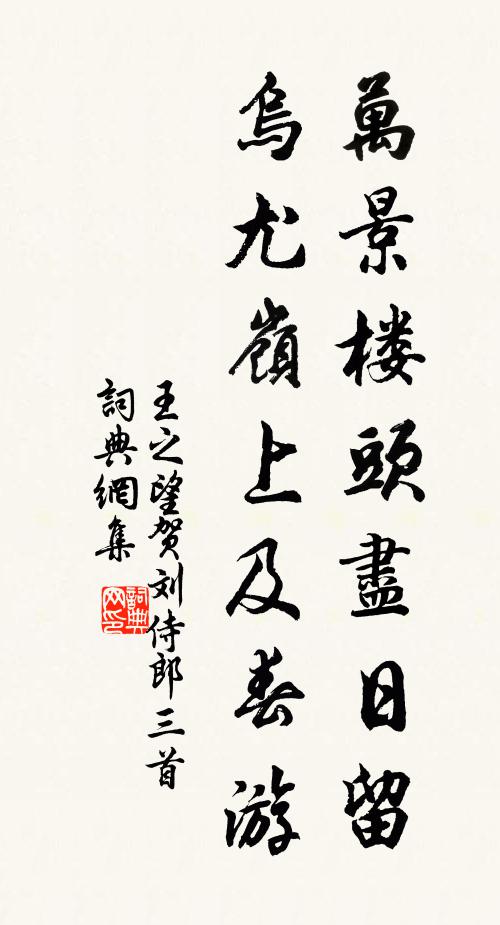 萬景楼頭盡日留
烏尤嶺上及春游
王之望賀刘侍郎三首
詞典網集
詞典网印